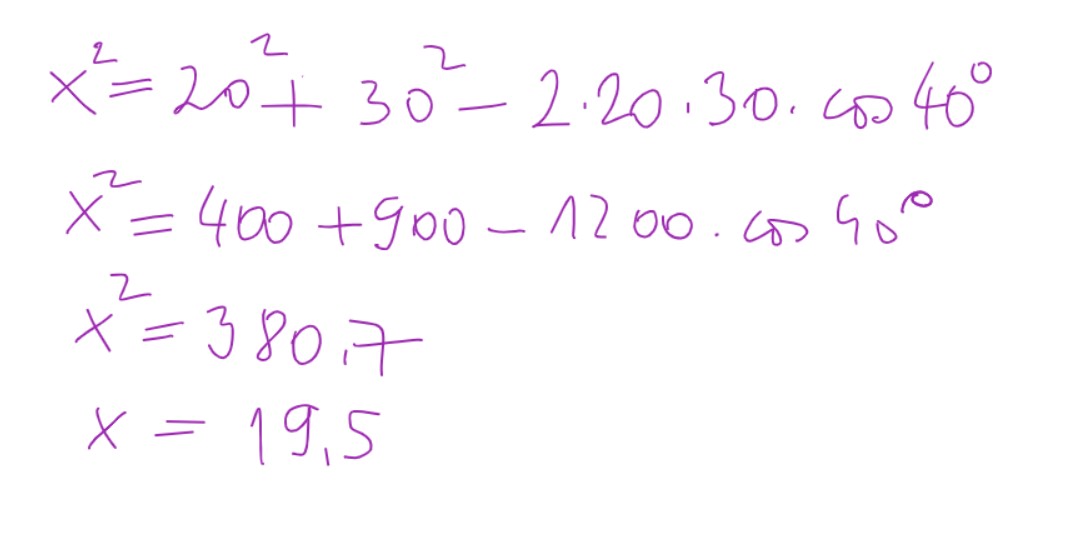 x² = 20² + 30² - 2·20·30·cos 40°
x² = 400 + 900 - 1200·cos 40°
x² = 380,7
x = 19,5